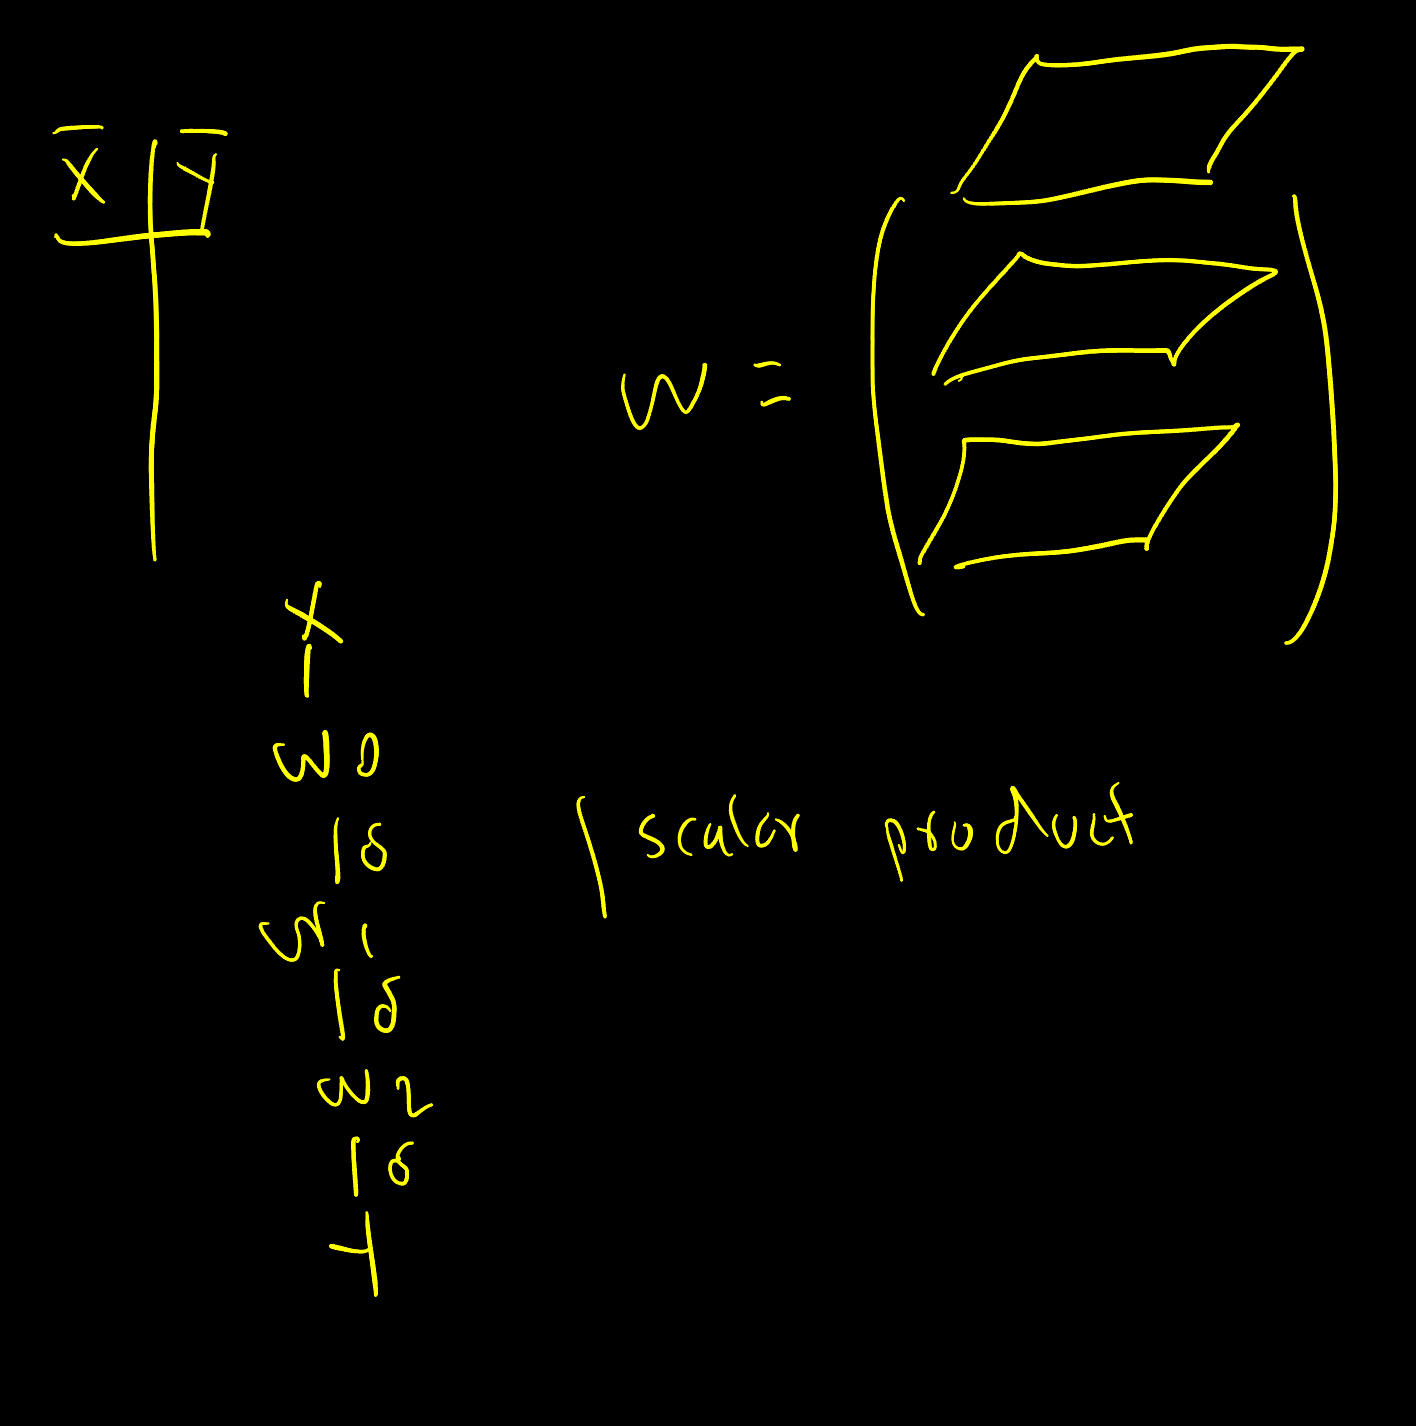 X̅ Y̅
W =
X
W0
σ
W1
σ
W2
σ
Y
| scalar product